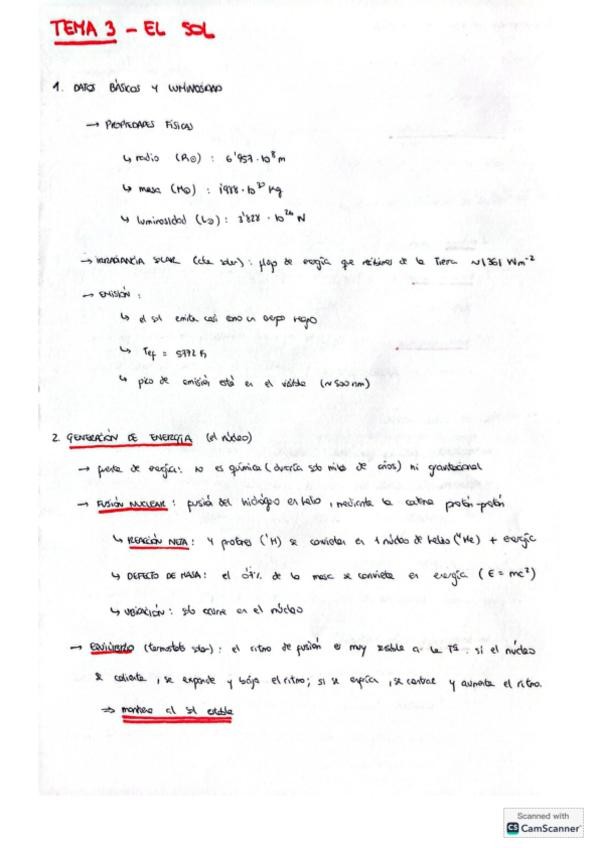 TEMA 3 - EL SOL
1. DATOS BÁSICOS Y LUMINOSIDAD
→ PROPIEDADES FÍSICAS
↳ radio (R⊙) : 6'957 · 10⁸ m
↳ masa (M⊙) : 1'988 · 10³⁰ kg
↳ luminosidad (L⊙) : 3'828 · 10²⁶ W
→ IRRADIANCIA SOLAR (cte solar) : flujo de energía que recibimos de la Tierra ~1361 Wm⁻²
→ EMISIÓN :
↳ el sol emite casi como un cuerpo negro
↳ Tef = 5772 K
↳ pico de emisión está en el visible (~500 nm)
2. GENERACIÓN DE ENERGÍA (el núcleo)
→ fuente de energía: no es química (duraría solo miles de años) ni gravitacional
→ FUSIÓN NUCLEAR : fusión del hidrógeno en helio, mediante la cadena protón-protón
↳ REACCIÓN NETA : 4 protones (¹H) se convierten en 1 núcleo de helio (⁴He) + energía
↳ DEFECTO DE MASA : el 0'7% de la masa se convierte en energía (E = mc²)
↳ UBICACIÓN : solo ocurre en el núcleo
→ EQUILIBRIO (termostato solar) : el ritmo de fusión es muy sensible a la Tª : si el núcleo
se calienta, se expande y baja el ritmo; si se enfría, se contrae y aumenta el ritmo.
⇒ mantiene al sol estable
Scanned with
CS CamScanner